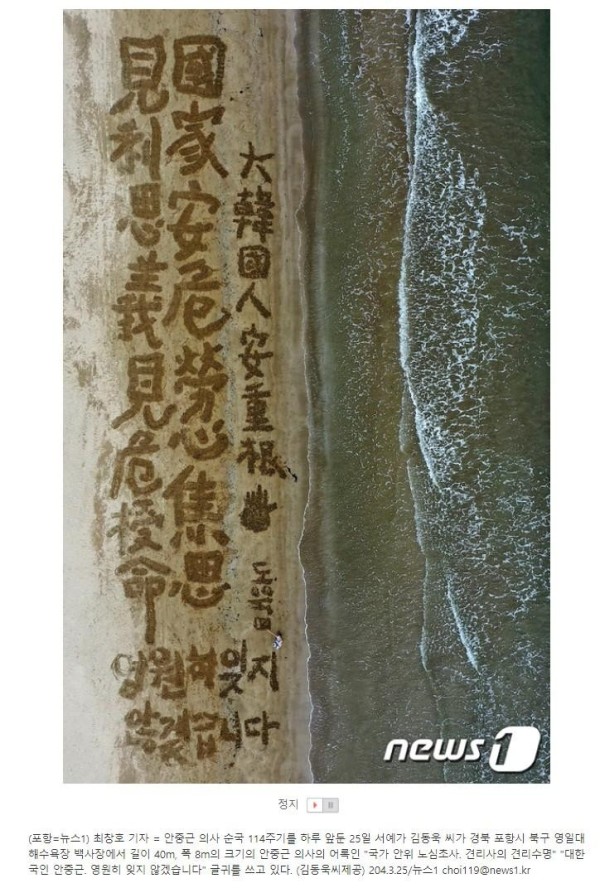 大韓國人安重根
國家安危勞心焦思
見利思義見危授命
영원히 잊지
않겠습니다
news1
정지
(포항=뉴스1) 최창호 기자 = 안중근 의사 순국 114주기를 하루 앞둔 25일 서예가 김동욱 씨가 경북 포항시 북구 영일대
해수욕장 백사장에서 길이 40m, 폭 8m의 크기의 안중근 의사의 어록인 "국가 안위 노심초사. 견리사의 견리수명" "대한
국인 안중근. 영원히 잊지 않겠습니다" 글귀를 쓰고 있다. (김동욱씨제공) 204.3.25/뉴스1 choi119@news1.kr